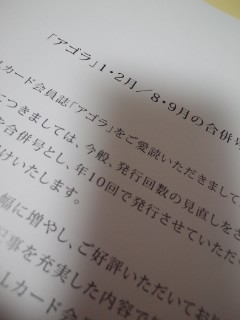 「アゴラ」1・2月／8・9月の合併号
Lカード会員誌「アゴラ」をご愛読いただきまして
につきましては、今般、発行回数の見直しをさ
を合併号とし、年10回で発行させていただ
けいたします。
幅に増やし、ご好評いただいてお
記事を充実した内容で
Lカード会